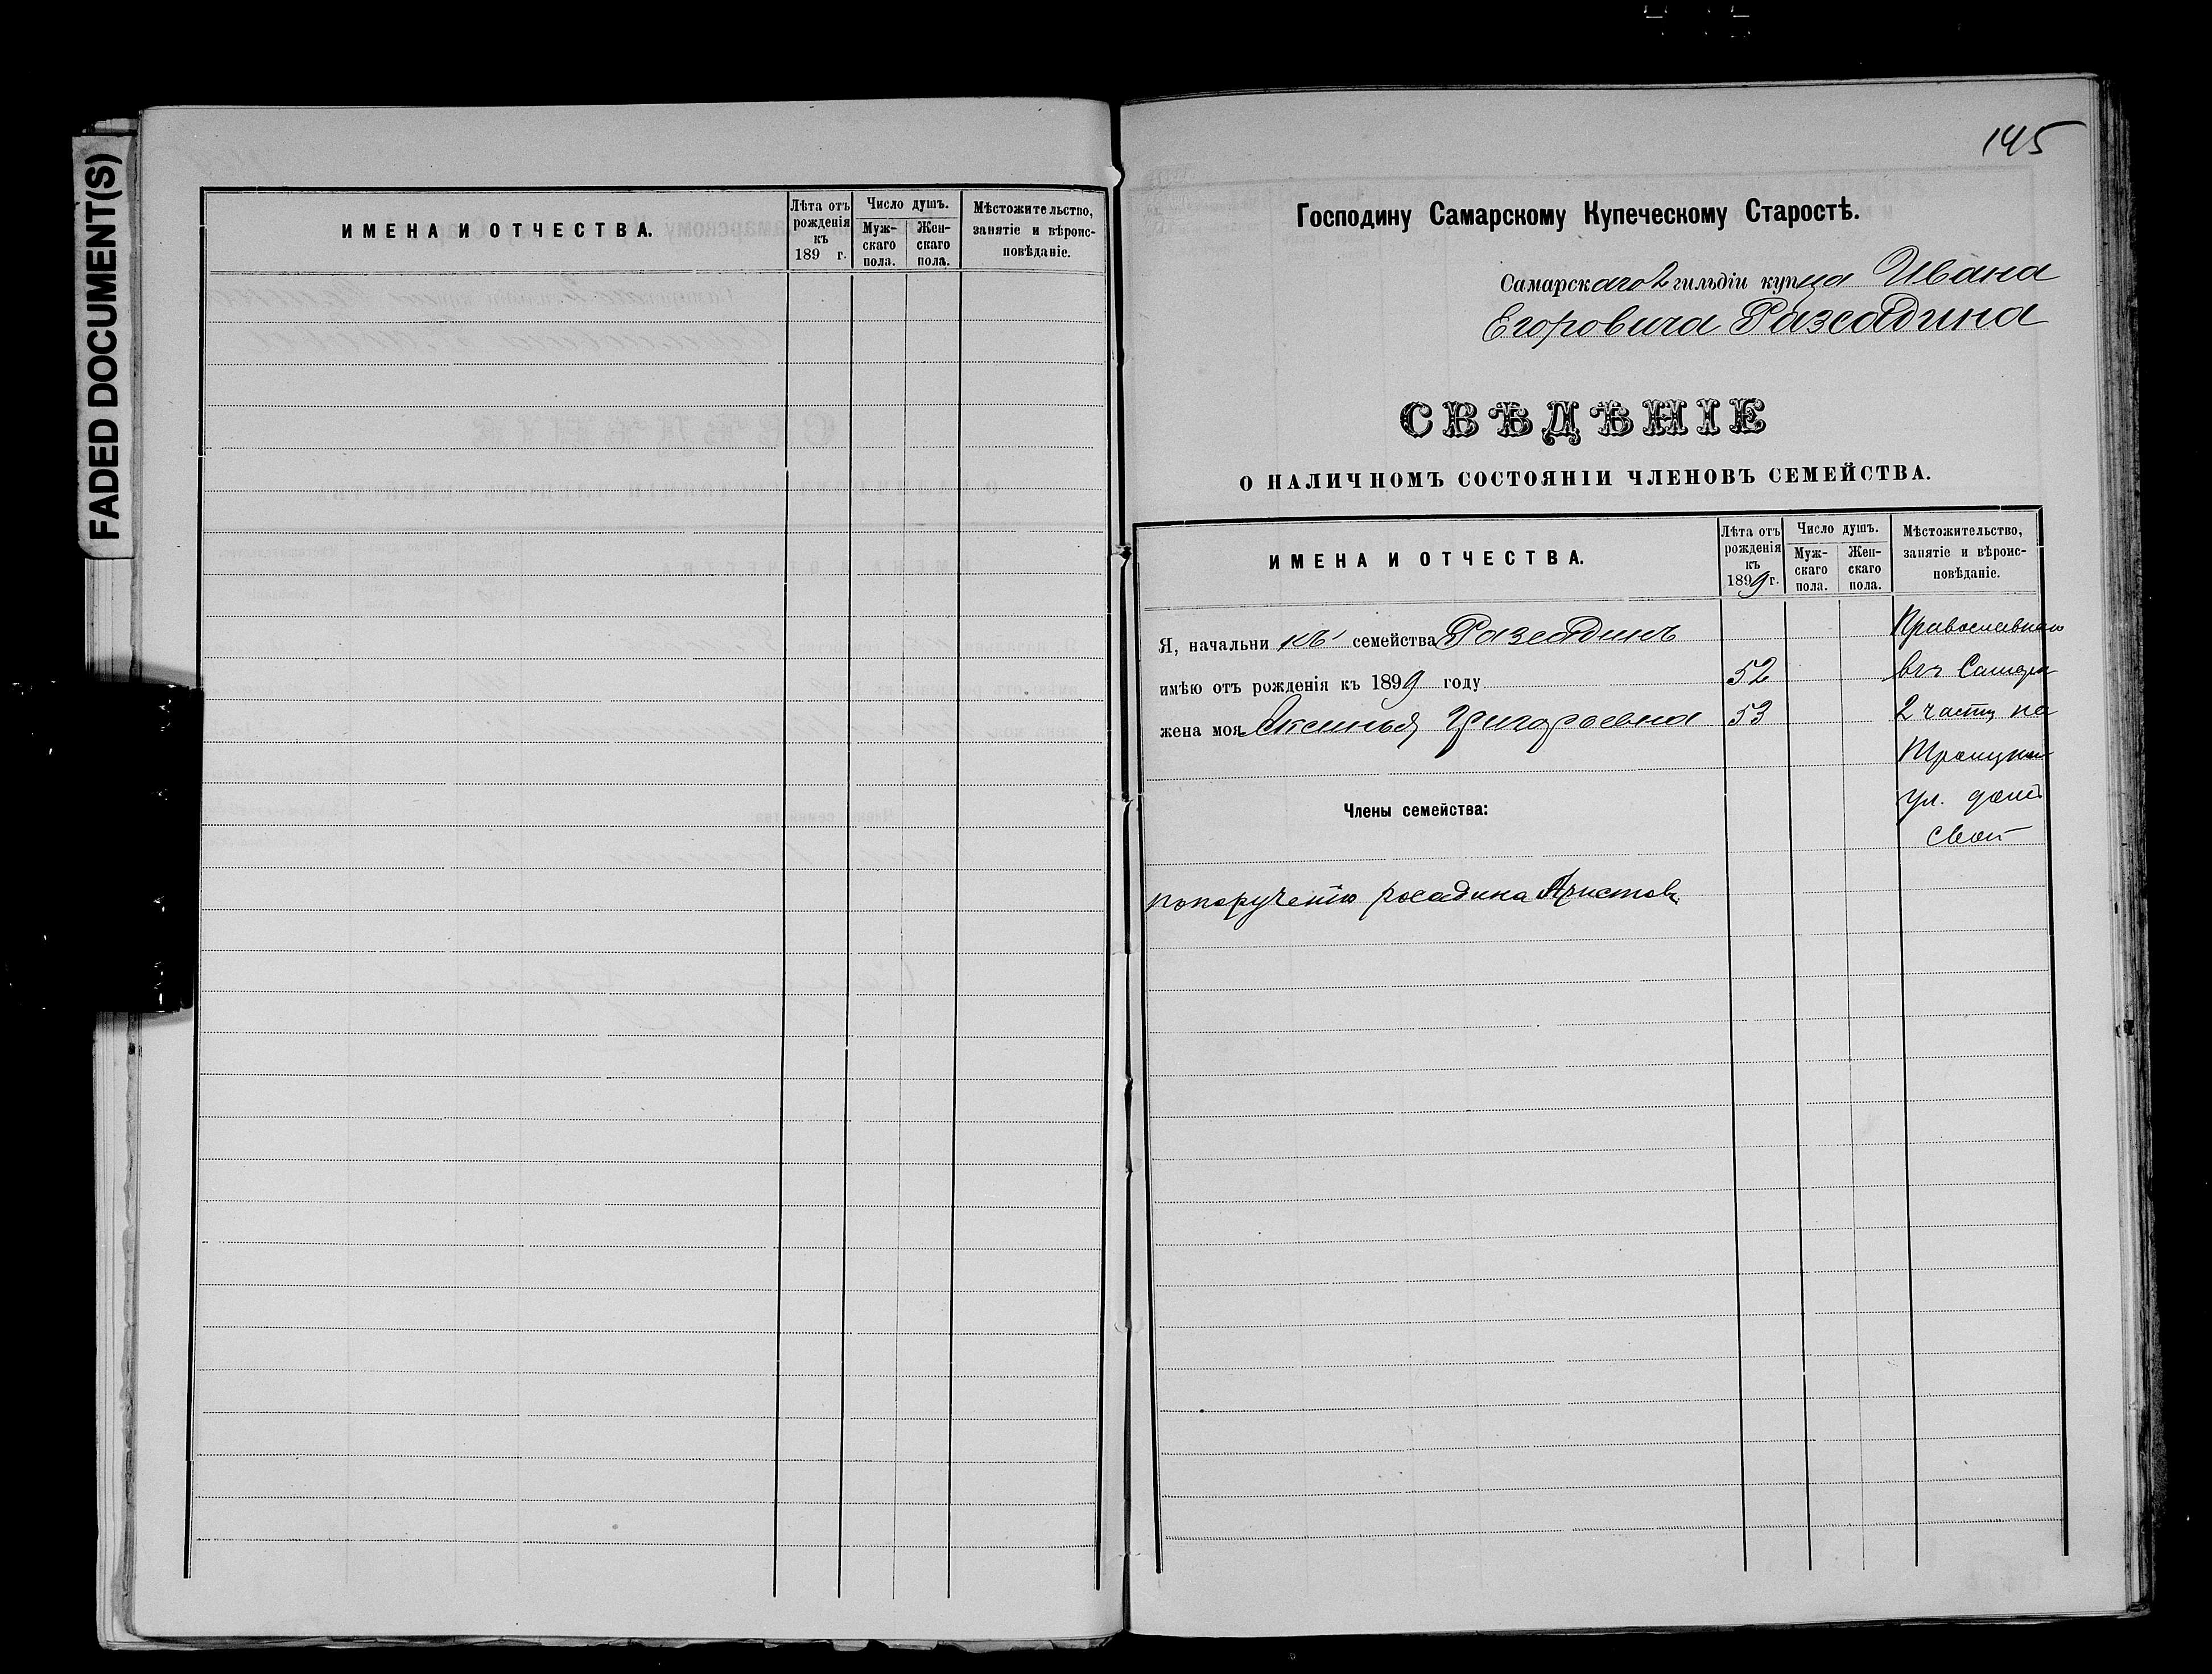 FADED DOCUMENT(S)
ИМЕНА И ОТЧЕСТВА.
Лѣта отъ рожденія къ 189 г.
Число душъ.
Мужскаго пола.
Женскаго пола.
Мѣстожительство, занятіе и вѣроисповѣданіе.
145
Господину Самарскому Купеческому Старостѣ.
Самарскаго 2 гильдіи купца Ивана
Егоровича Разсадина
СВѢДѢНІЕ
О НАЛИЧНОМЪ СОСТОЯНІИ ЧЛЕНОВЪ СЕМЕЙСТВА.
ИМЕНА И ОТЧЕСТВА.
Лѣта отъ рожденія къ 1899 г.
Число душъ.
Муж-
скаго
пола.
Жен-
скаго
пола.
Мѣстожительство,
занятіе и вѣроис-
повѣданіе.
Я, начальникъ семейства Разсадинъ
имѣю отъ рожденія къ 1899 году 52
жена моя Аксинья Григорьевна 53
Православнаго
въ Самара
2 части на
Троицкой
ул. домъ
свой
Члены семейства:
попорученію росадина Аристовъ